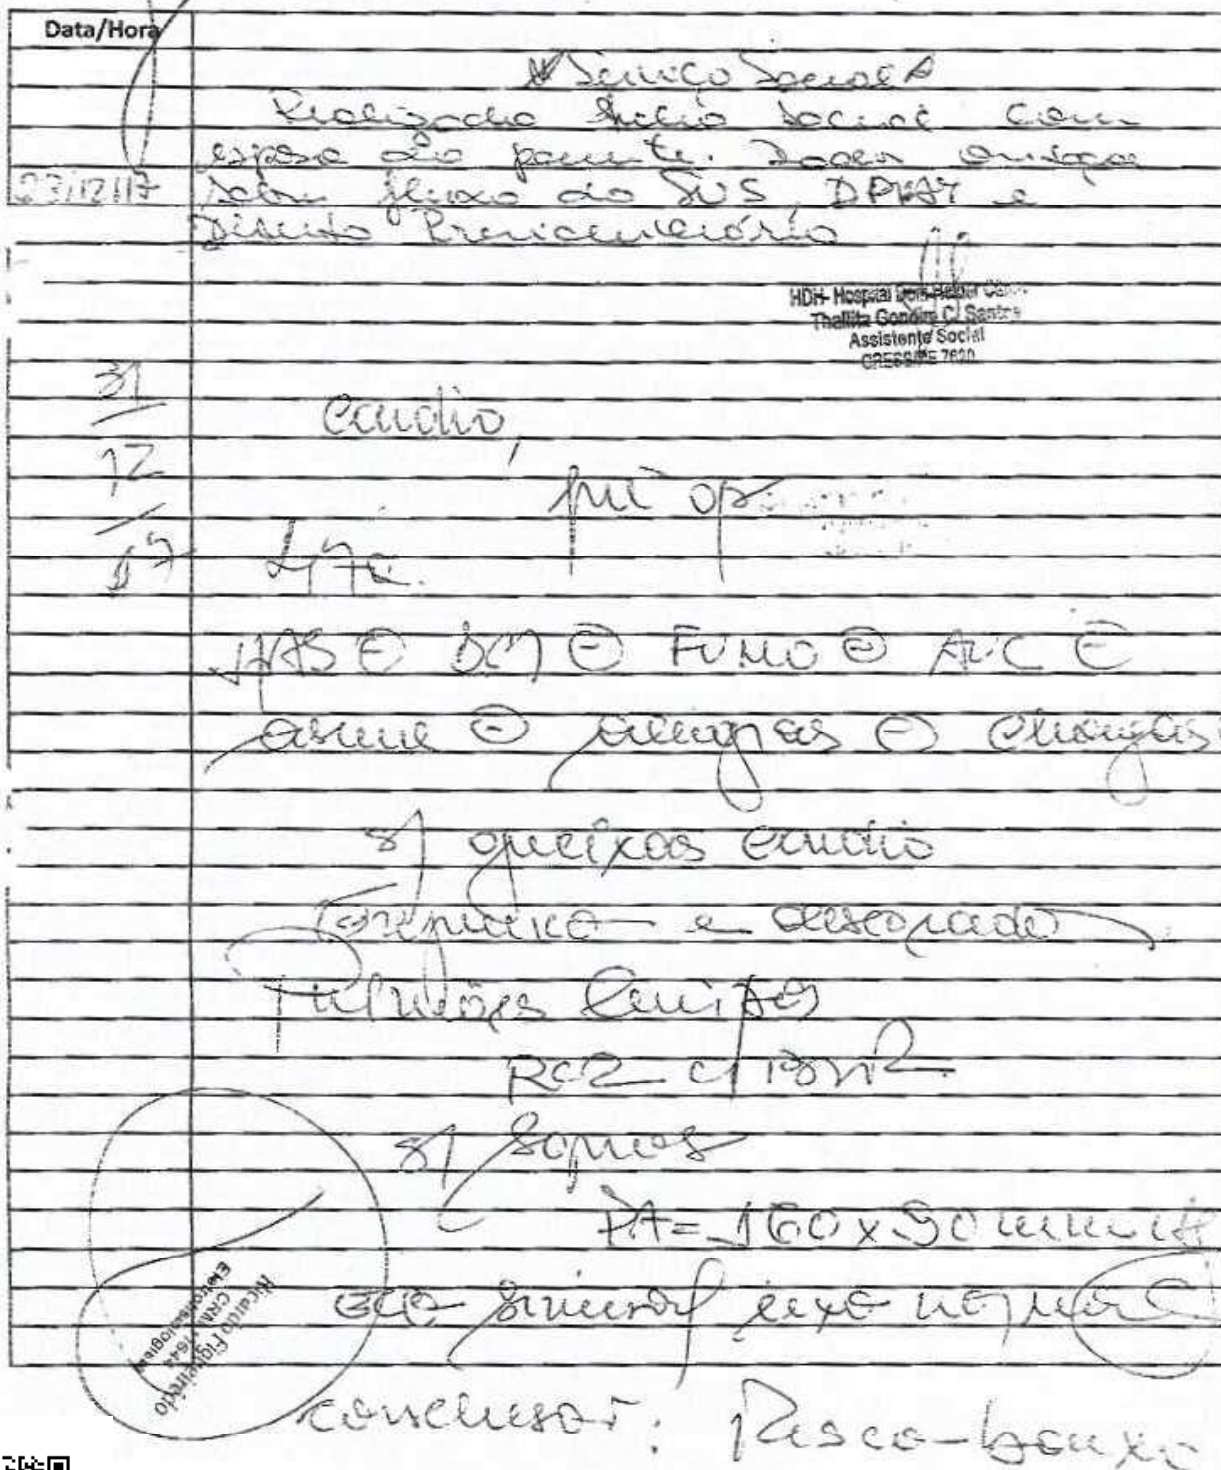 Data/Hora
Serviço Social
Realizado social com
esposa do paciente. Dada
23/12/17 sobre fluxo do SUS, DPVAT e
Direito Previdenciário
HDH- Hospital Dom Helder
Thallita Gondim C. Santos
Assistente Social
CRESS/PE
31
12
17
cardio,
pré op
47a.
HAS ⊖ DM ⊖ FUMO ⊖ AVC ⊖
asma ⊖ alergias ⊖ cirurgias
s/ queixas cardio
e descorado
Pulmões limpos
RCR c/ BNR
s/ sopros
PA= 160x90 mmHg
ECG. sinusal eixo normal
Ricardo Figueiredo
conclusão: Risco-baixo